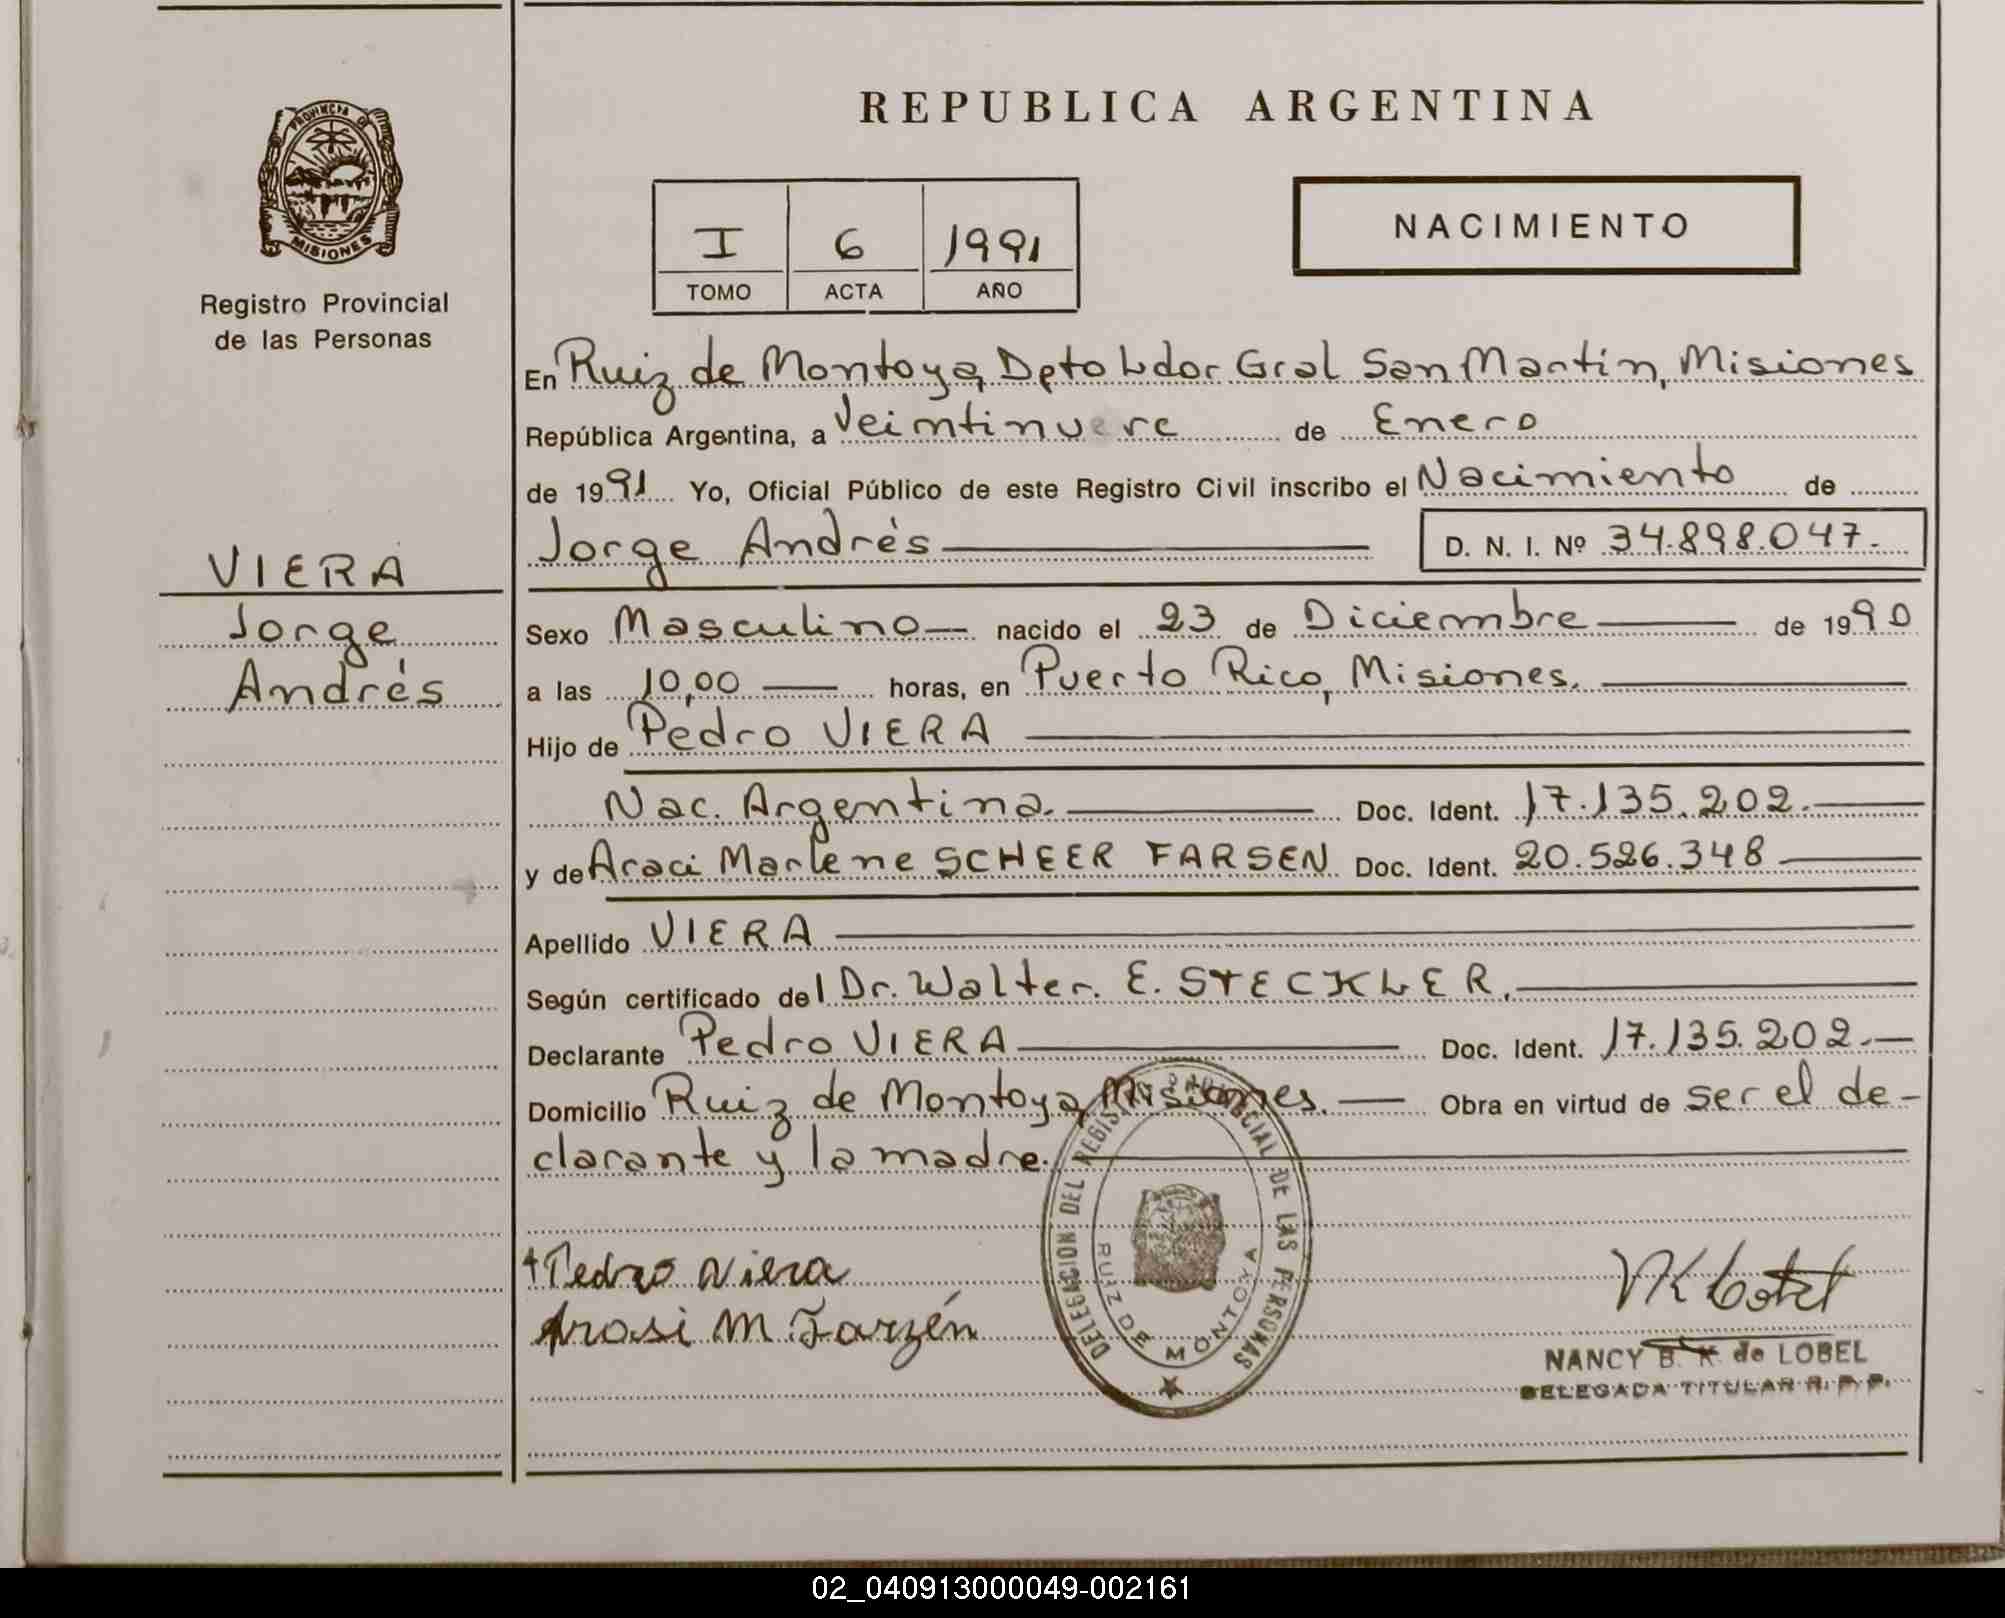 REPUBLICA ARGENTINA
PROVINCIA DE
MISIONES
Registro Provincial
de las Personas
I 6 1991
TOMO ACTA AÑO
NACIMIENTO
En Ruiz de Montoya, Dpto Ldor Gral San Martín, Misiones
República Argentina, a Veintinueve de Enero
de 1991 Yo, Oficial Público de este Registro Civil inscribo el Nacimiento de
Jorge Andrés D. N. I. Nº 34.898.047.
VIERA
Jorge
Andrés
Sexo Masculino nacido el 23 de Diciembre de 1990
a las 10,00 horas, en Puerto Rico, Misiones.
Hijo de Pedro VIERA
Nac. Argentina. Doc. Ident. 17.135.202.
y de Araci Marlene SCHEER FARSEN Doc. Ident. 20.526.348
Apellido VIERA
Según certificado del Dr. Walter. E. STECKLER.
Declarante Pedro VIERA Doc. Ident. 17.135.202.
Domicilio Ruiz de Montoya, Misiones. Obra en virtud de ser el de-
clarante y la madre.
DELEGACION DEL REGISTRO PROVINCIAL DE LAS PERSONAS
RUIZ DE MONTOYA
Pedro Viera
Arasi M Farzén
NANCY B. K. de LOBEL
DELEGADA TITULAR R. P. P.
02_040913000049-002161